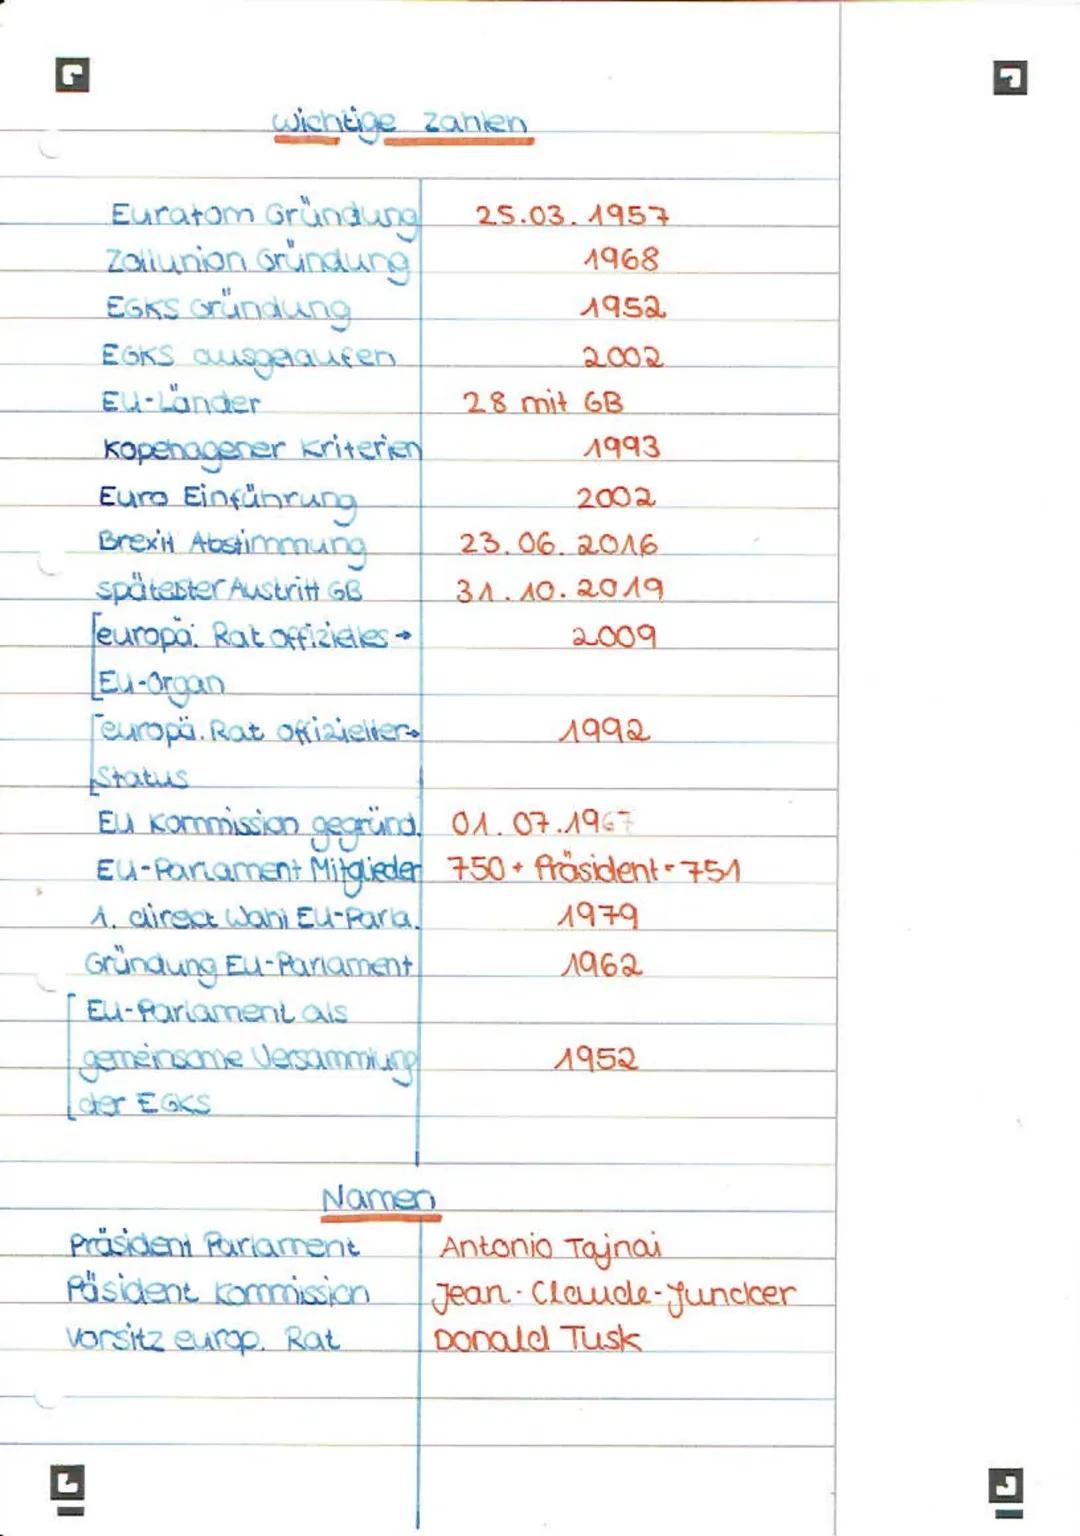 wichtige Zahlen
Euratom Gründung 25.03.1957
Zollunion Gründung 1968
EGKS Gründung 1952
EGKS ausgelaufen 2002
EU-Länder 28 mit GB
Kopenhagener Kriterien 1993
Euro Einführung 2002
Brexit Abstimmung 23.06.2016
spätester Austritt GB 31.10.2019
europä. Rat offizielles → 2009
EU-Organ
europä. Rat offizieller → 1992
Status
EU Kommission gegründ. 01.07.1967
EU-Parlament Mitglieder 750 + Präsident - 751
1. direct Wahl EU-Parla. 1979
Gründung EU-Parlament 1962
EU-Parlament als
gemeinsame Versammlung 1952
der EGKS
Namen
Präsident Parlament Antonio Tajnai
Päsident Kommission Jean-Claude-Juncker
Vorsitz europ. Rat Donald Tusk